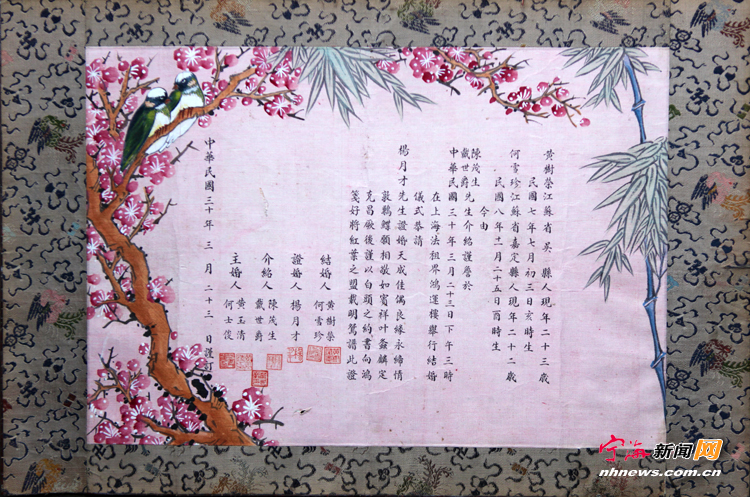 黃樹榮江蘇省吳縣人現年二十三歲
民國七年七月初三日亥時生
何雪珍江蘇省嘉定縣人現年二十二歲
民國八年十一月二十五日酉時生
今由
陳茂生
戴世爵先生介紹謹詹於
中華民國三十年三月二十三日下午三時
在上海法租界鴻運樓舉行結婚
儀式恭請
楊月才先生證婚天成佳偶良緣永締情
敦鶼鰈願相敬如賓祥叶螽麟定
克昌厥後謹以白頭之約書向鴻
箋好將紅葉之盟載明鴛譜此證
結婚人 黃樹榮
何雪珍
證婚人 楊月才
介紹人 陳茂生
戴世爵
主婚人 黃玉清
何士俊
中華民國三十年三月二十三日謹
宁海新闻网
nhnews.com.cn